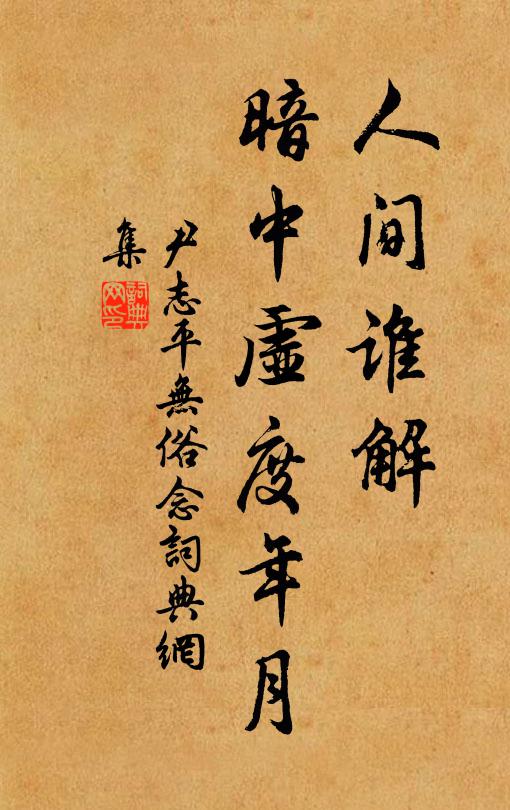 人间谁解
暗中虚度年月
尹志平無俗念詞典網
集
詞典
网印